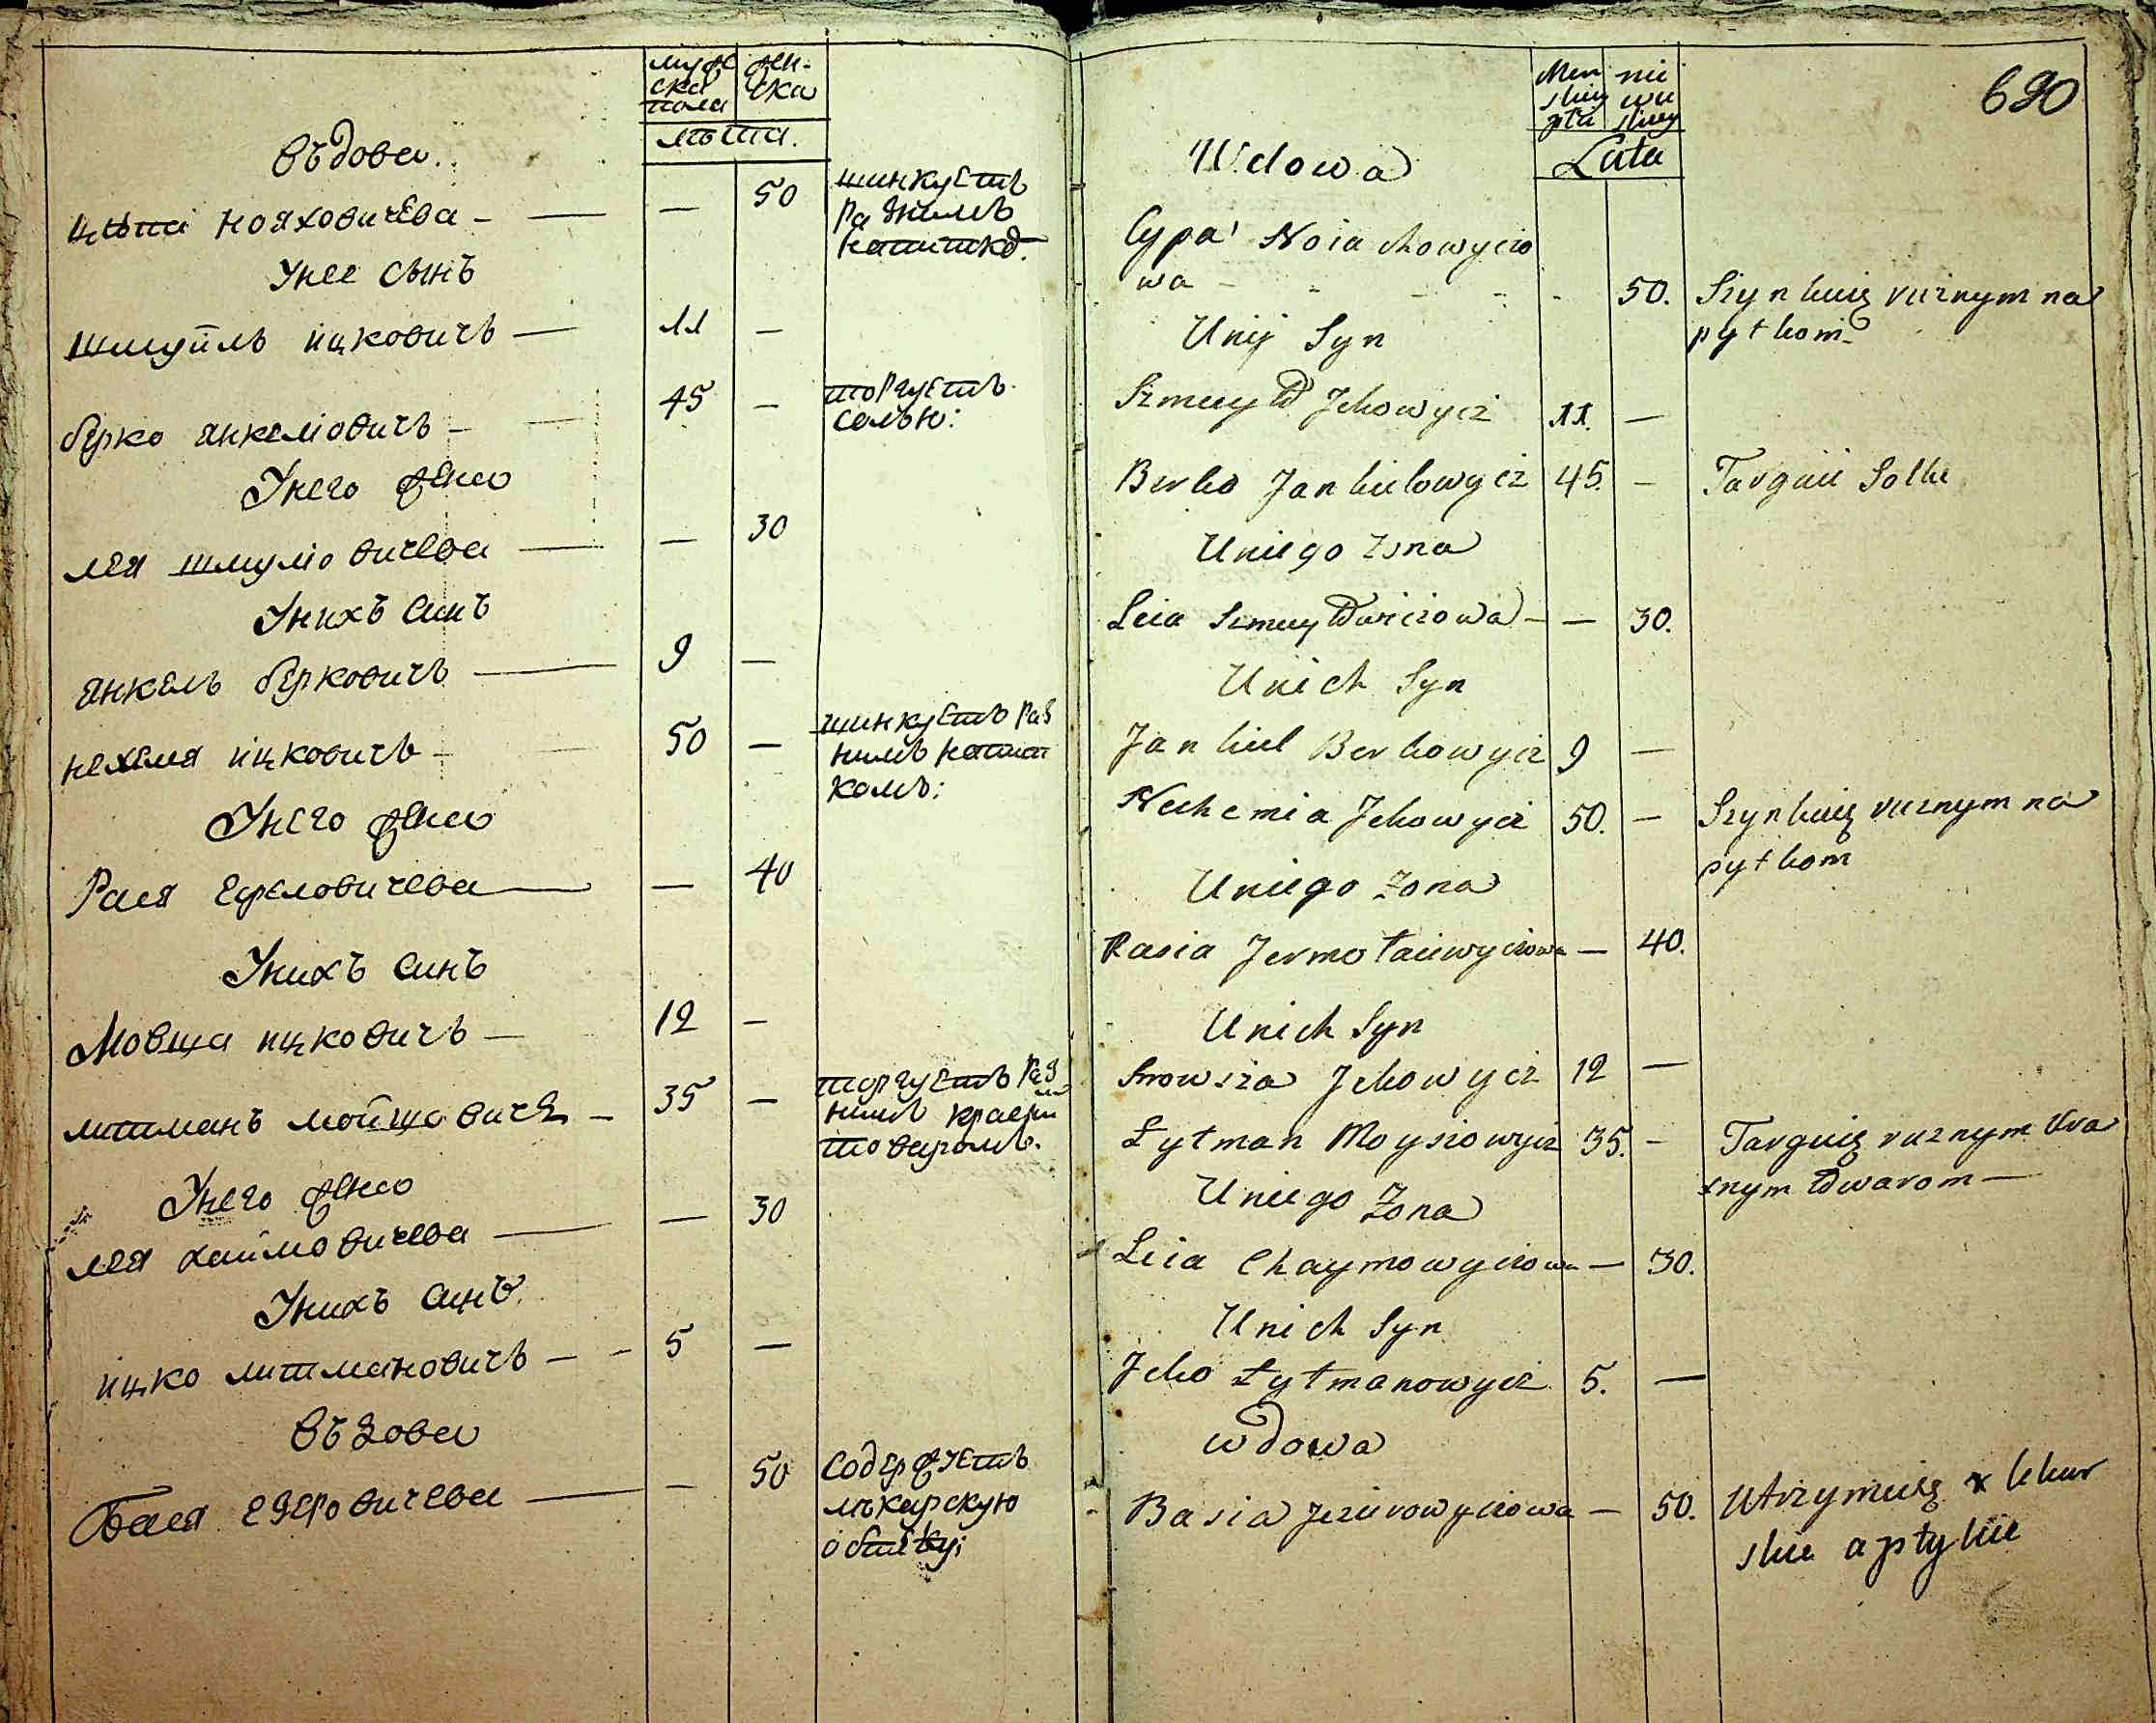 муж
ска
пола
жен-
ска
лѣта.
въдова.
ципа нояховичева - — — 50 шинкуетъ
разнимъ
напитко.
Унее сынъ
шмуйль ицковичъ — 11 —
берко янкеліовичъ — 45 — торгуетъ
солью:
Унего жена
лея шмуліовичева — — 30
Унихъ синъ
янкель берковичъ — 9 —
нехемя ицковичъ - — 50 — шинкуетъ раз
нимъ напит
комъ:
Унего жена
Рася — — 40
Унихъ синъ
Мовша ицковичъ — 12 —
литманъ мойшовичъ — 35 — торгуетъ раз
нимъ красни
товаромъ.
Унего жена
лея хаймовичева — — 30
Унихъ синъ
ицко литмановичъ — - 5 —
въдова
Бася езеровичева — - 50 содержуетъ
лѣкарскую
690
Men
skiey
płci
nie
wie
skiey
Lata
Wdowa
Cypa Noia chowyczo
wa - - - - - 50. Szynkuię rużnym na
pytkom
Unij Syn
Szmuyło Jckowycz 11. —
Berko Jankielowycz 45. — Targuie Solie
Uniego Zona
Leia Szmuyłowiczowa - — 30.
Unich Syn
Jankiel Berkowycz 9 —
Nechemia Jckowycz 50. — Szynkuię rużnym na
pytkom
Uniego Zona
Rasia Jermołaiewyczowa — 40.
Unich Syn
Mowsza Jckowycz 12 —
Łytman Moyszowycz 35. — Targuię rużnym kra
snym towarom —
Uniego Zona
Leia Chaymowyczowa — 30.
Unich Syn
Jcko Łytmanowycz 5. —
wdowa
Basia Jezierowyczowa — 50. Utrzymuię lekar
skie aptykie